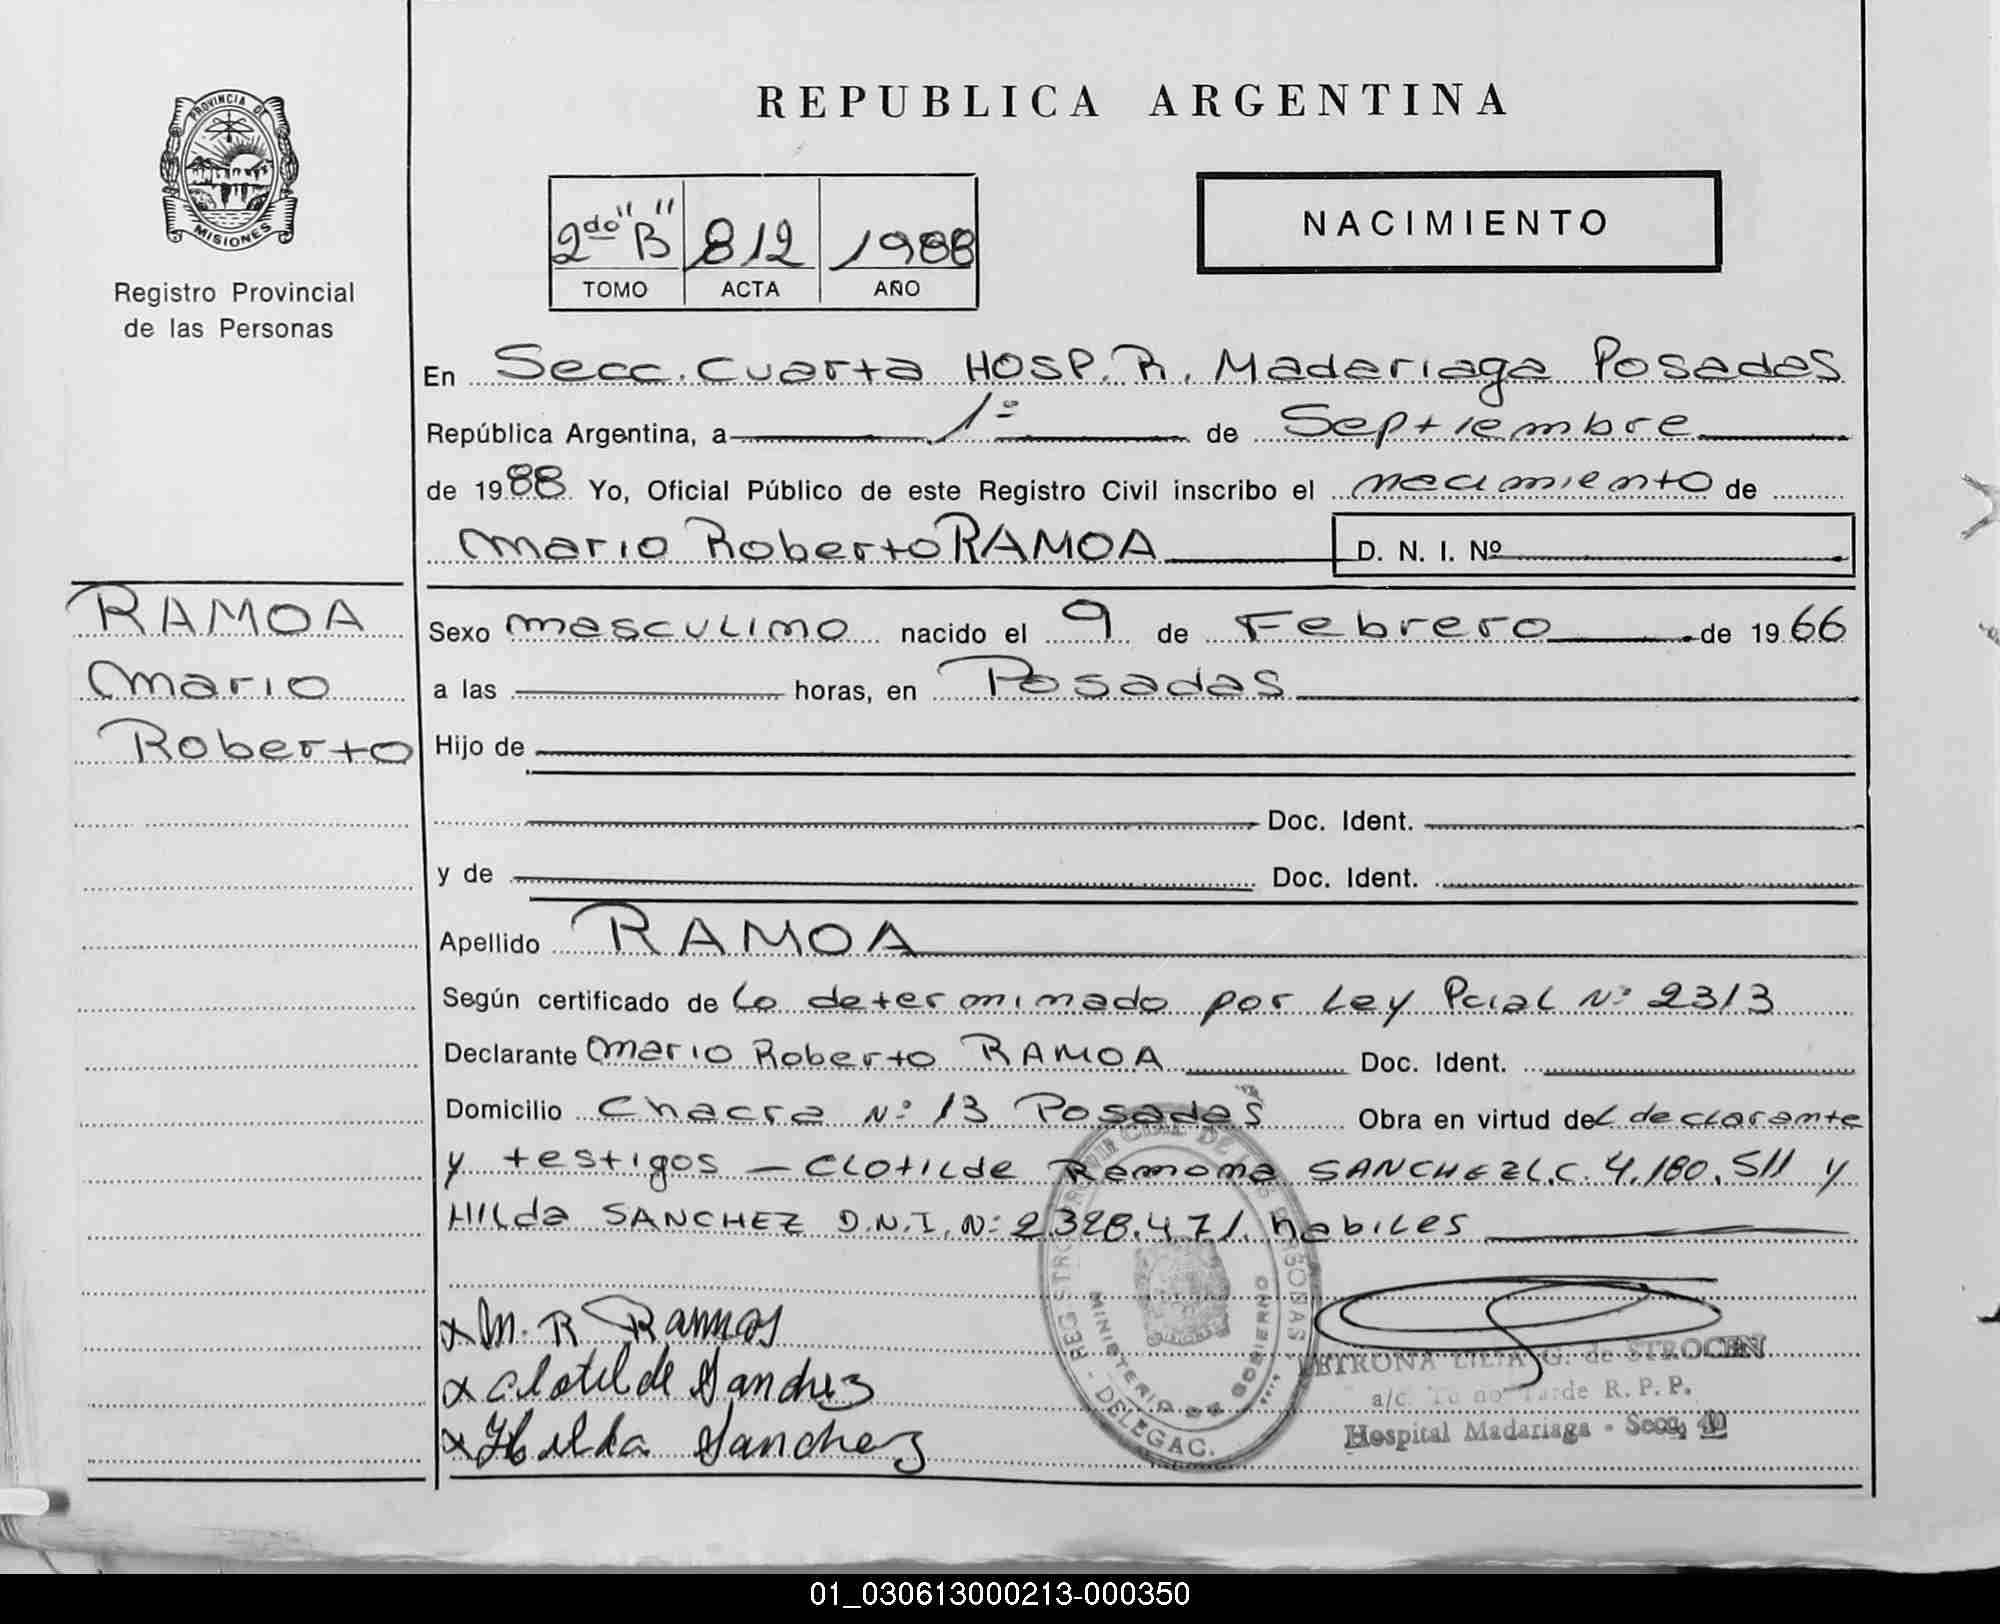 PROVINCIA DE
MISIONES
Registro Provincial
de las Personas
REPUBLICA ARGENTINA
2do "B" 812 1988
TOMO ACTA AÑO
NACIMIENTO
En Secc. Cuarta HOSP. R. Madariaga Posadas
República Argentina, a 1º de Septiembre
de 1988 Yo, Oficial Público de este Registro Civil inscribo el nacimiento de
Mario Roberto RAMOA D. N. I. Nº
RAMOA
Mario
Roberto
Sexo masculino nacido el 9 de Febrero de 1966
a las horas, en Posadas
Hijo de
Doc. Ident.
y de Doc. Ident.
Apellido RAMOA
Según certificado de Lo determinado por Ley Pcial Nº 2313
Declarante Mario Roberto RAMOA Doc. Ident.
Domicilio Chacra Nº 13 Posadas Obra en virtud del declarante
y testigos — CLOTILDE Ramona SANCHEZ L.C. 4.180.511 y
HILda SANCHEZ D.N.I. Nº 2.328.471. habiles
x M. R Ramos
x Clotilde Sanchez
x Hilda Sanchez
MINISTERIO DE GOBIERNO
DELEGAC.
PETRONA LILIA G. de STROCEN
a/c. Turno Tarde R. P. P.
Hospital Madariaga - Secc. 4a
01_030613000213-000350